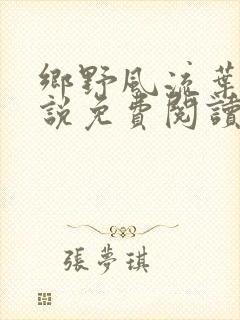 鄉野風流葉
說免費閱讀
張夢琪